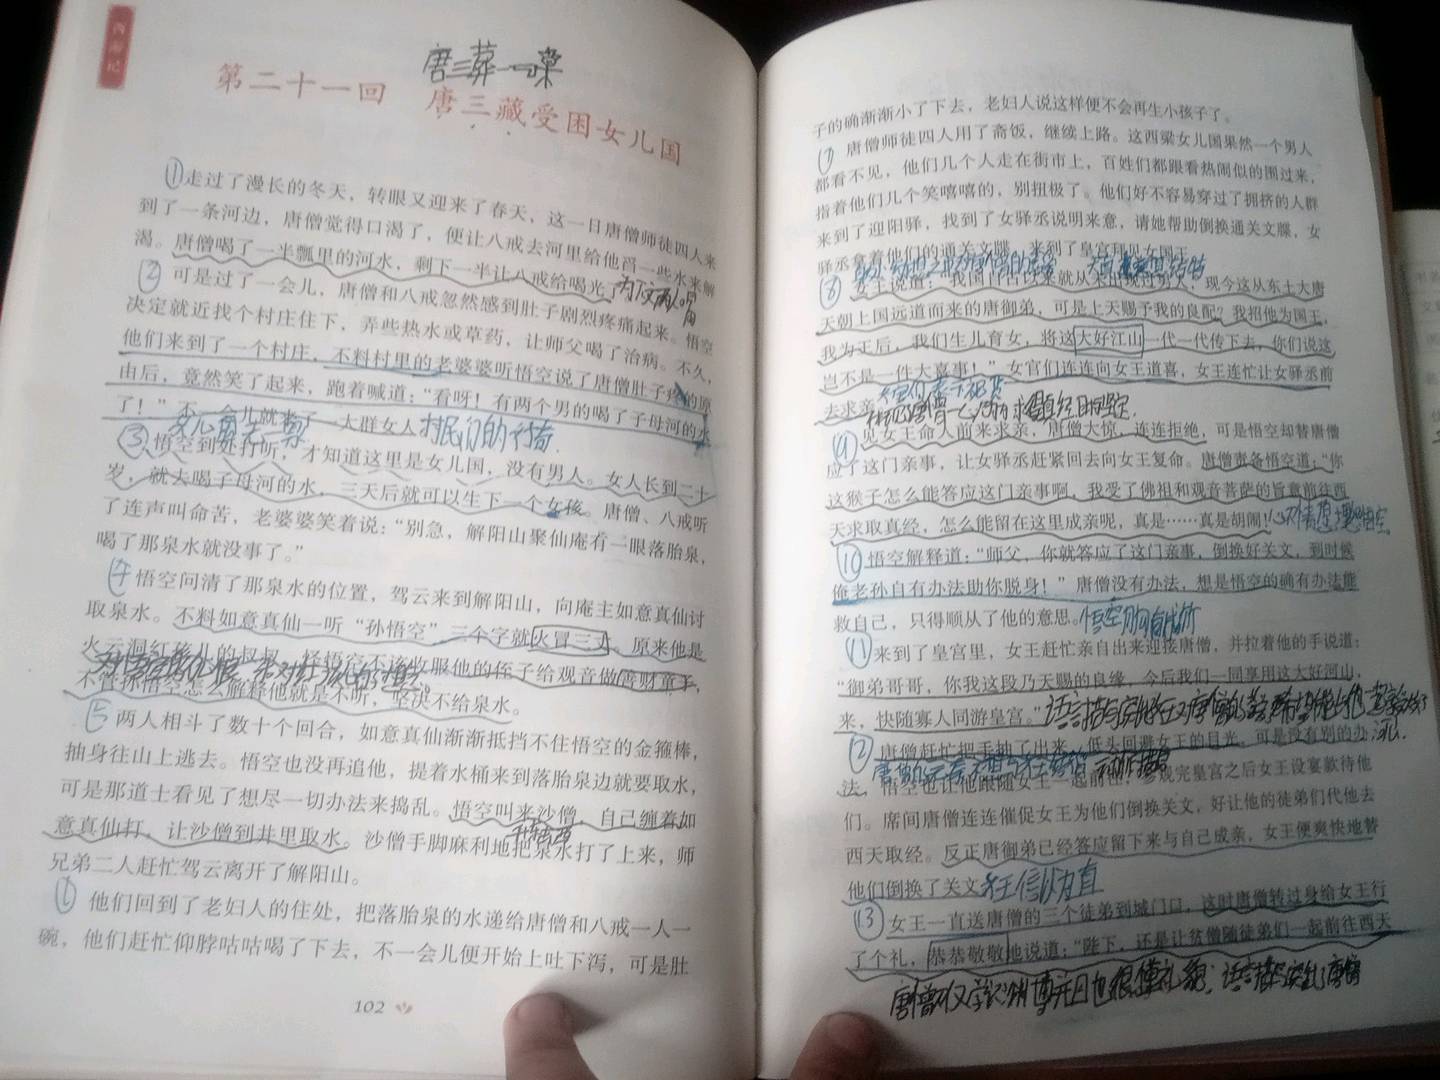 西游记
第二十一回 唐三藏受困女儿国
①走过了漫长的冬天，转眼又迎来了春天，这一日唐僧师徒四人来
到了一条河边，唐僧觉得口渴了，便让八戒去河里给他舀一些水来解
渴。唐僧喝了一半瓢里的河水，剩下一半让八戒给喝光了
② 可是过了一会儿，唐僧和八戒忽然感到肚子剧烈疼痛起来。悟空
决定就近找个村庄住下，弄些热水或草药，让师父喝了治病。不久，
他们来到了一个村庄，不料村里的老婆婆听悟空说了唐僧肚子疼的原
由后，竟然笑了起来，跑着喊道：“看呀！有两个男的喝了子母河的水
了！”不一会儿就来了一大群女人
③ 悟空到处打听，才知道这里是女儿国，没有男人。女人长到二十
岁，就去喝子母河的水，三天后就可以生下一个女孩。唐僧、八戒听
了连声叫命苦，老婆婆笑着说：“别急，解阳山聚仙庵有一眼落胎泉，
喝了那泉水就没事了。”
④ 悟空问清了那泉水的位置，驾云来到解阳山，向庵主如意真仙讨
取泉水。不料如意真仙一听“孙悟空”三个字就火冒三丈。原来他是
火云洞红孩儿的叔叔，怪悟空不该收服他的侄子给观音做善财童子，
不管你悟空怎么解释他就是不听，坚决不给泉水。
⑤ 两人相斗了数十个回合，如意真仙渐渐抵挡不住悟空的金箍棒，
抽身往山上逃去。悟空也没再追他，提着水桶来到落胎泉边就要取水，
可是那道士看见了想尽一切办法来捣乱。悟空叫来沙僧，自己缠着如
意真仙打，让沙僧到井里取水。沙僧手脚麻利地把泉水打了上来，师
兄弟二人赶忙驾云离开了解阳山。
他们回到了老妇人的住处，把落胎泉的水递给唐僧和八戒一人一
碗，他们赶忙仰脖咕咕喝了下去，不一会儿便开始上吐下泻，可是肚
102
子的确渐渐小了下去，老妇人说这样便不会再生小孩子了。
唐僧师徒四人用了斋饭，继续上路。这西梁女儿国果然一个男人
都看不见，他们几个人走在街市上，百姓们都跟看热闹似的围过来，
指着他们几个笑嘻嘻的，别扭极了。他们好不容易穿过了拥挤的人群
来到了迎阳驿，找到了女驿丞说明来意，请她帮助倒换通关文牒，女
驿丞拿着他们的通关文牒，来到了皇宫拜见女国王
⑧ 女王说道：“我国自古以来就从未出现过男人，现今这从东土大唐
天朝上国远道而来的唐御弟，可是上天赐予我的良配？我招他为国王，
我为王后，我们生儿育女，将这大好江山一代一代传下去，你们说这
岂不是一件大喜事！”女官们连连向女王道喜，女王连忙让女驿丞前
去求亲
见女王命人前来求亲，唐僧大惊，连连拒绝，可是悟空却替唐僧
应了这门亲事，让女驿丞赶紧回去向女王复命。唐僧责备悟空道：“你
这猴子怎么能答应这门亲事啊，我受了佛祖和观音菩萨的旨意前往西
天求取真经，怎么能留在这里成亲呢，真是……真是胡闹！
⑩ 悟空解释道：“师父，你就答应了这门亲事，倒换好关文，到时候
俺老孙自有办法助你脱身！”唐僧没有办法，想是悟空的确有办法能
救自己，只得顺从了他的意思。
⑪ 来到了皇宫里，女王赶忙亲自出来迎接唐僧，并拉着他的手说道：
“御弟哥哥，你我这段乃天赐的良缘，今后我们一同享用这大好河山，
来，快随寡人同游皇宫。”
⑫ 唐僧赶忙把手抽了出来，低头回避女王的目光。可是没有别的办
法，悟空也让他跟随女王一起前
们。席间唐僧连连催促女王为他们倒换关文，好让他的徒弟们代他去
西天取经。反正唐御弟已经答应留下来与自己成亲，女王便爽快地替
他们倒换了关文 女王信以为真
⑬ 女王一直送唐僧的三个徒弟到城门口，这时唐僧转过身给女王行
了个礼，恭恭敬敬地说道：“陛下，还是让贫僧随徒弟们一起前往西天